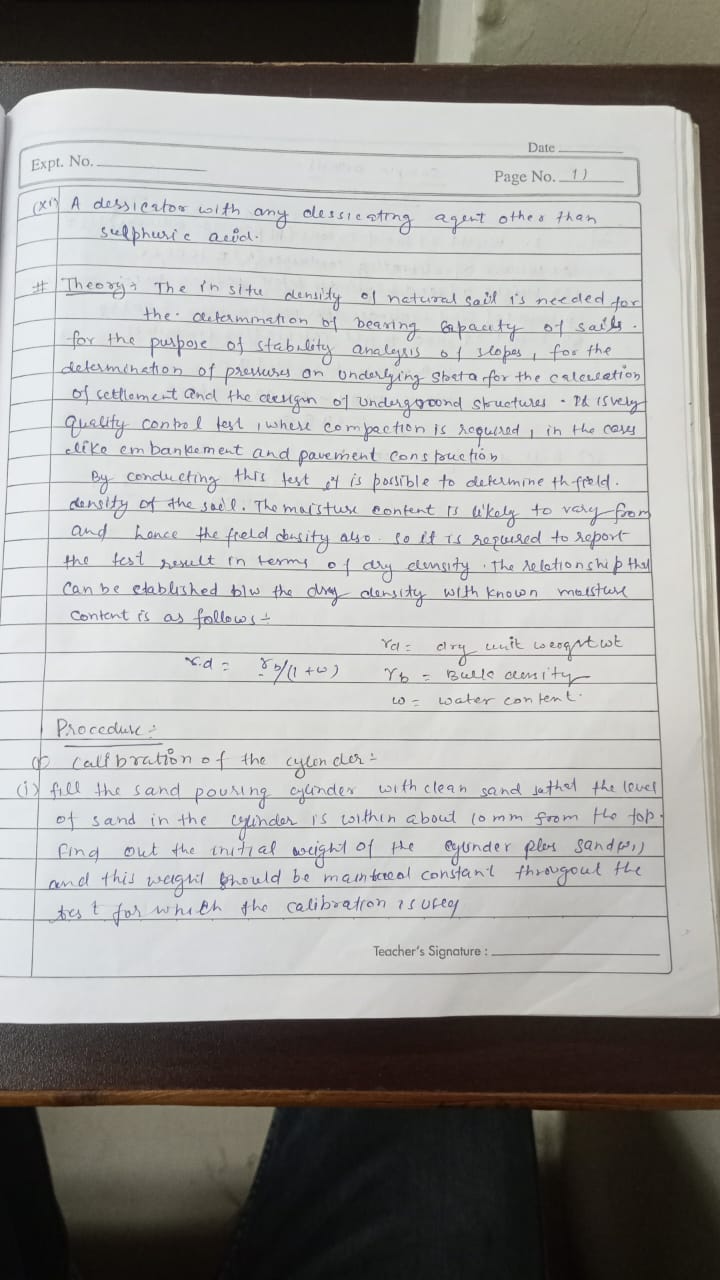 Date
Expt. No.
Page No. 11
(xi) A dessicator with any dessicating agent other than
sulphuric acid.
# Theory:- The in situ density of natural soil is needed for
the determination of bearing capacity of soils.
for the purpose of stability analysis of slopes, for the
determination of pressures on underlying strata for the calculation
of settlement and the design of underground structures. It is very
quality control test, where compaction is required, in the cases
like embankment and pavement construction
By conducting this test it is possible to determine th field.
density of the soil. The moisture content is likely to vary from
and hence the field density also. so it is required to report
the test result in terms of dry density. The relationship that
can be established b/w the dry density with known moisture
content is as follows:-
γd = dry unit weoght wt
γ.d = γb/(1+w)
γb = Bulk density
w = water content.
Procedure:-
Calibration of the cylender:-
(i) fill the sand pouring cylinder with clean sand sothat the level
of sand in the cylinder is within about 10 mm from the top.
Find out the initial weight of the cylinder plus sand(w1)
and this weight should be maintained constant througout the
test for which the calibration is used
Teacher's Signature :